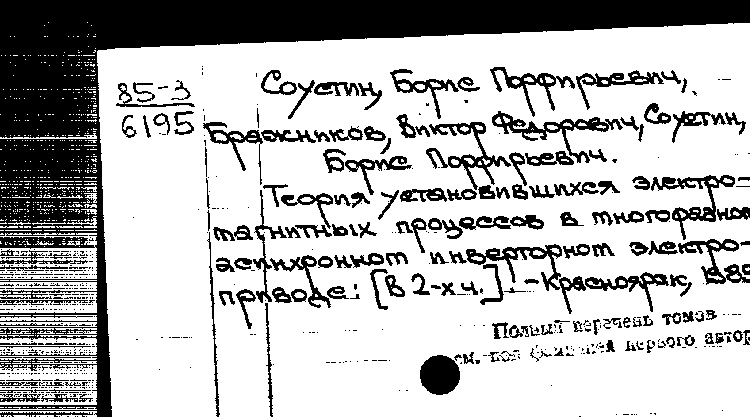 85-3
6195
Соустин, Борис Порфирьевич,
Бражников, Виктор Федорович, Соустин,
Борис Порфирьевич.
Теория установившихся электро-
магнитных процессов в многофазном
асинхронном инверторном электро-
приводе: [В 2-х ч.]. - Красноярск,
Полный перечень томов
см. под фамилией первого автор